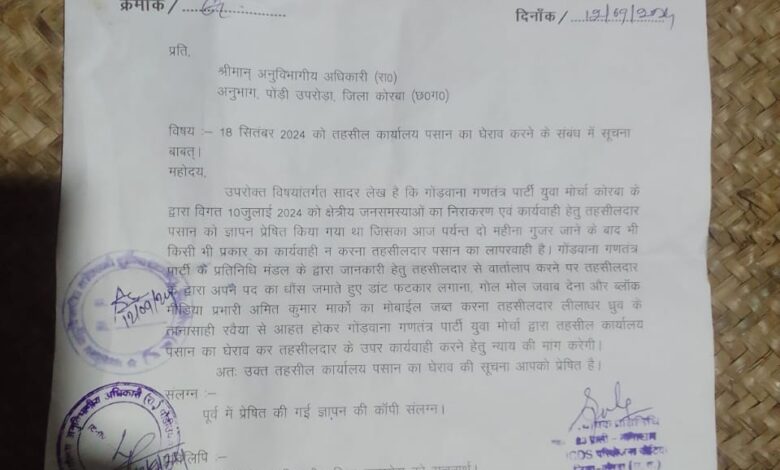 क्रमांक /
दिनाँक / 12/09/2024
प्रति,
श्रीमान् अनुविभागीय अधिकारी (रा०)
अनुभाग, पोंड़ी उपरोड़ा, जिला कोरबा (छ०ग०)
विषय :– 18 सितंबर 2024 को तहसील कार्यालय पसान का घेराव करने के संबंध में सूचना
बाबत्।
महोदय,
उपरोक्त विषयांतर्गत सादर लेख है कि गोंड़वाना गणतंत्र पार्टी युवा मोर्चा कोरबा के
द्वारा विगत 10जुलाई 2024 को क्षेत्रीय जनसमस्याओं का निराकरण एवं कार्यवाही हेतु तहसीलदार
पसान को ज्ञापन प्रेषित किया गया था जिसका आज पर्यन्त दो महीना गुजर जाने के बाद भी
किसी भी प्रकार का कार्यवाही न करना तहसीलदार पसान का लापरवाही है। गोंड़वाना गणतंत्र
पार्टी के प्रतिनिधि मंडल के द्वारा जानकारी हेतु तहसीलदार से वार्तालाप करने पर तहसीलदार
के द्वारा अपने पद का धौंस जमाते हुए डांट फटकार लगाना, गोल मोल जवाब देना और ब्लॉक
मीडिया प्रभारी अमित कुमार मार्को का मोबाईल जब्त करना तहसीलदार लीलाधर ध्रुव के
तानासाही रवैया से आहत होकर गोंडवाना गणतंत्र पार्टी युवा मोर्चा द्वारा तहसील कार्यालय
पसान का घेराव कर तहसीलदार के उपर कार्यवाही करने हेतु न्याय की मांग करेगी।
अतः उक्त तहसील कार्यालय पसान का घेराव की सूचना आपको प्रेषित है।
12/09/24
संलग्न :–
पूर्व में प्रेषित की गई ज्ञापन की कॉपी संलग्न।